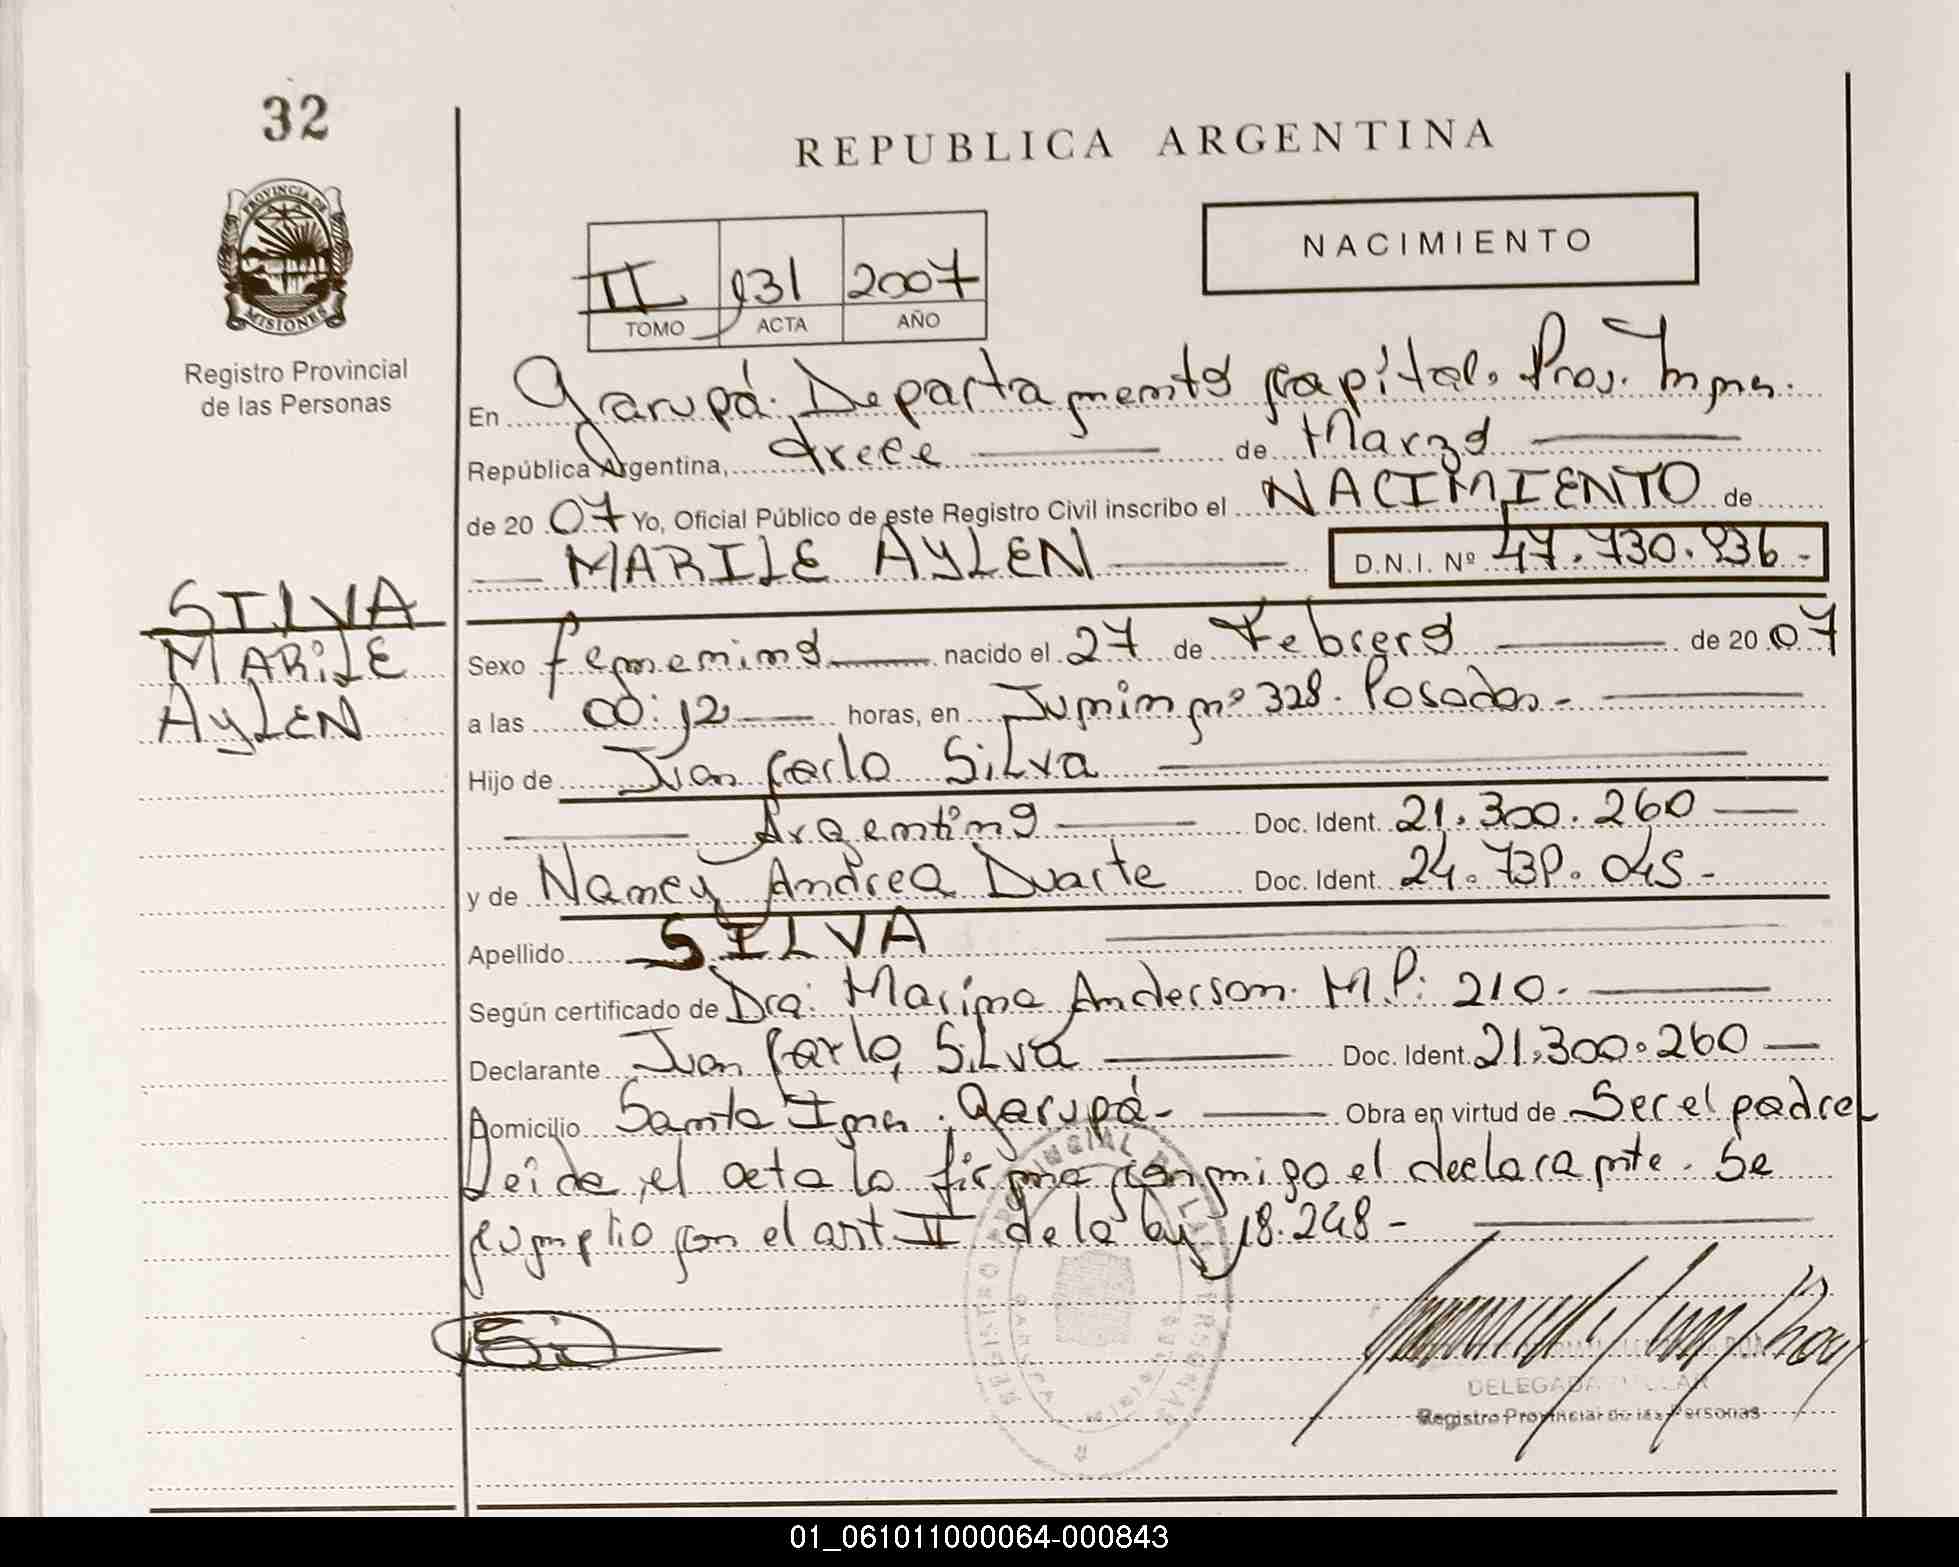 32
REPUBLICA ARGENTINA
PROVINCIA DE
MISIONES
Registro Provincial
de las Personas
NACIMIENTO
II 131 2007
TOMO ACTA AÑO
En Garupá. Departamento Capital. Prov. Mnes.
República Argentina, trece de Marzo
de 20 07 Yo, Oficial Público de este Registro Civil inscribo el NACIMIENTO de
MARILE AYLEN D.N.I. Nº 47.730.936.-
SILVA
MARiLE
AyLEN
Sexo femenino nacido el 27 de Febrero de 20 07
a las 00:12 horas, en Junin nº 328. Posadas.-
Hijo de Juan Carlo SiLva
Argentino Doc. Ident. 21.300.260
y de Nancy Andrea Duarte Doc. Ident. 24. .045.-
Apellido SILVA
Según certificado de Dra: Marina Anderson. M.P: 210.-
Declarante Juan Carlo SiLva Doc. Ident. 21.300.260
Domicilio Santa Ines. Garupá- Obra en virtud de Ser el padre
Leida el acta la firma conmigo el declarante. Se
cumplio con el art II de la ley 18.248-
REGISTRO PROVINCIAL DE LAS PERSONAS
GARUPA
DELEGADA TITULAR
Registro Provincial de las Personas
01_061011000064-000843